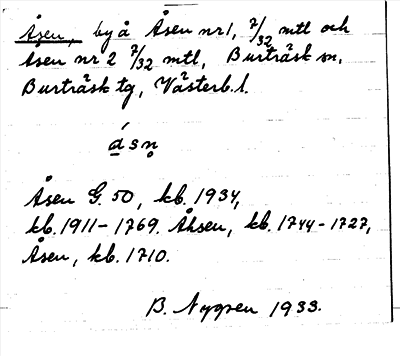 Åsen, by å Åsen nr 1, 7/32 mtl och
Åsen nr 2 7/32 mtl, Burträsk sn,
Burträsk tg, Västerb. l.
ǻsn̥
Åsen G. 50, kb. 1934,
kb. 1911-1769. Åhsen, kb. 1744-1727,
Åsen, kb. 1710.
B. Nygren 1933.